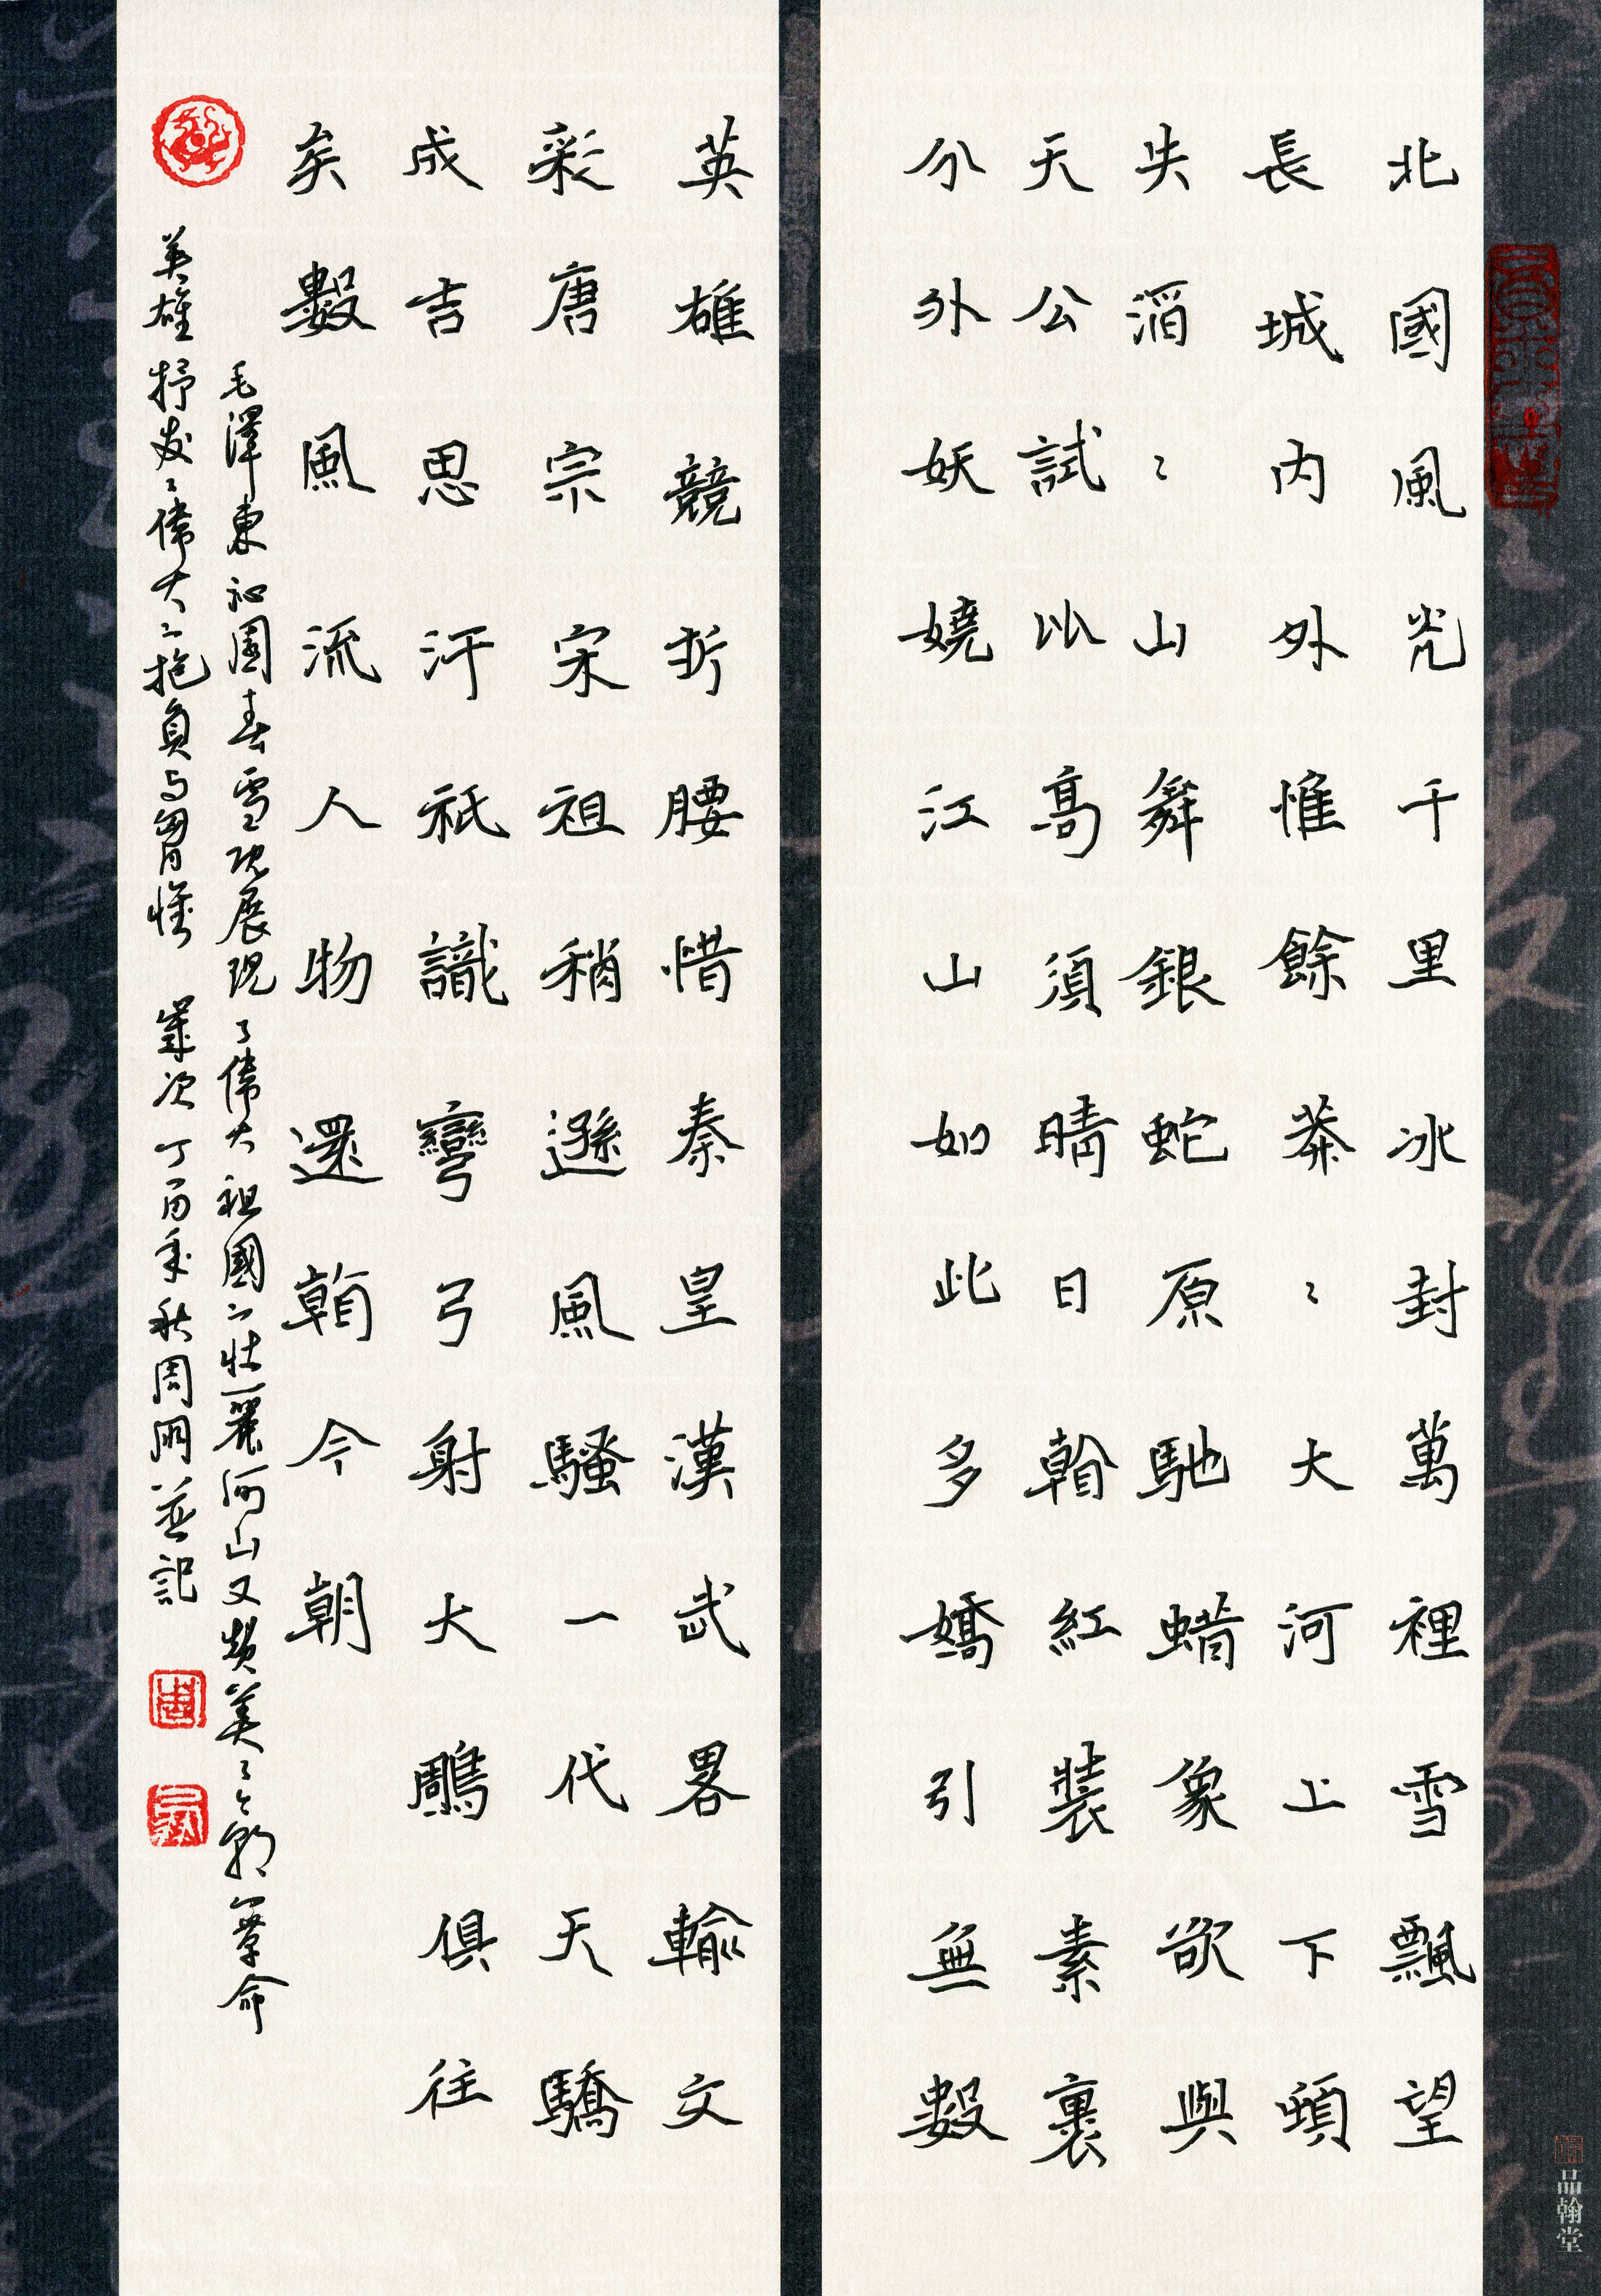 北國風光千里冰封萬裡雪飄望
長城内外惟餘莽〻大河上下頓
失滔〻山舞銀蛇原馳蜡象欲與
天公試比高須晴日看紅裝素裹
分外妖嬈江山如此多嬌引無數
英雄競折腰惜秦皇漢武畧輸文
彩唐宗宋祖稍遜風騷一代天驕
成吉思汗祇識彎弓射大鵰俱往
矣數風流人物還看今朝
毛澤東沁園春雪既展現了偉大祖國之壯麗河山又贊美了今朝革命
英雄抒发了偉大之抱負与胸懷 歲次丁酉年秋周朋並記
品翰堂